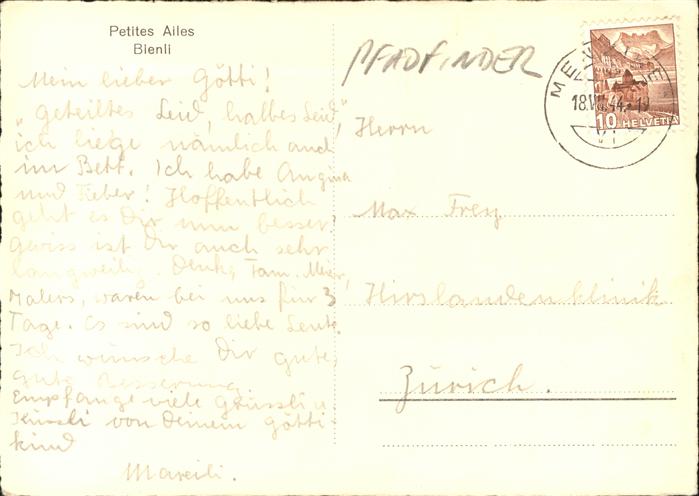 Petites Ailes
Bienli
PFADFINDER
Mein lieber Götti!
"geteiltes Leid, halbes Leid",
ich liege nämlich auch
im Bett. Ich habe Angina
und Fieber! Hoffentlich
geht es Dir nun besser,
gewiss ist Dir auch sehr
langweilig. Denke, Fam. Meier,
Malers, waren bei uns für 3
Tage. Es sind so liebe Leute.
Ich wünsche Dir gute,
gute Besserung
Empfange viele Grüssli u.
Küssli von Deinem Götti-
kind
Mareili.
Herrn
Max Frey
Hirslandenklinik
Zürich.
18.VII.44.-19
VI
10 HELVETIA